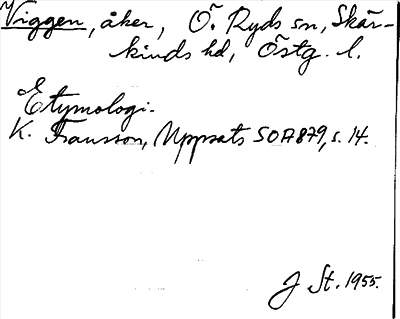 Viggen, åker, Ö. Ryds sn, Skär-
kinds hd, Östg. l.
Etymologi.
K. Fransson, Uppsats SOA879, s. 14.
J St. 1955.